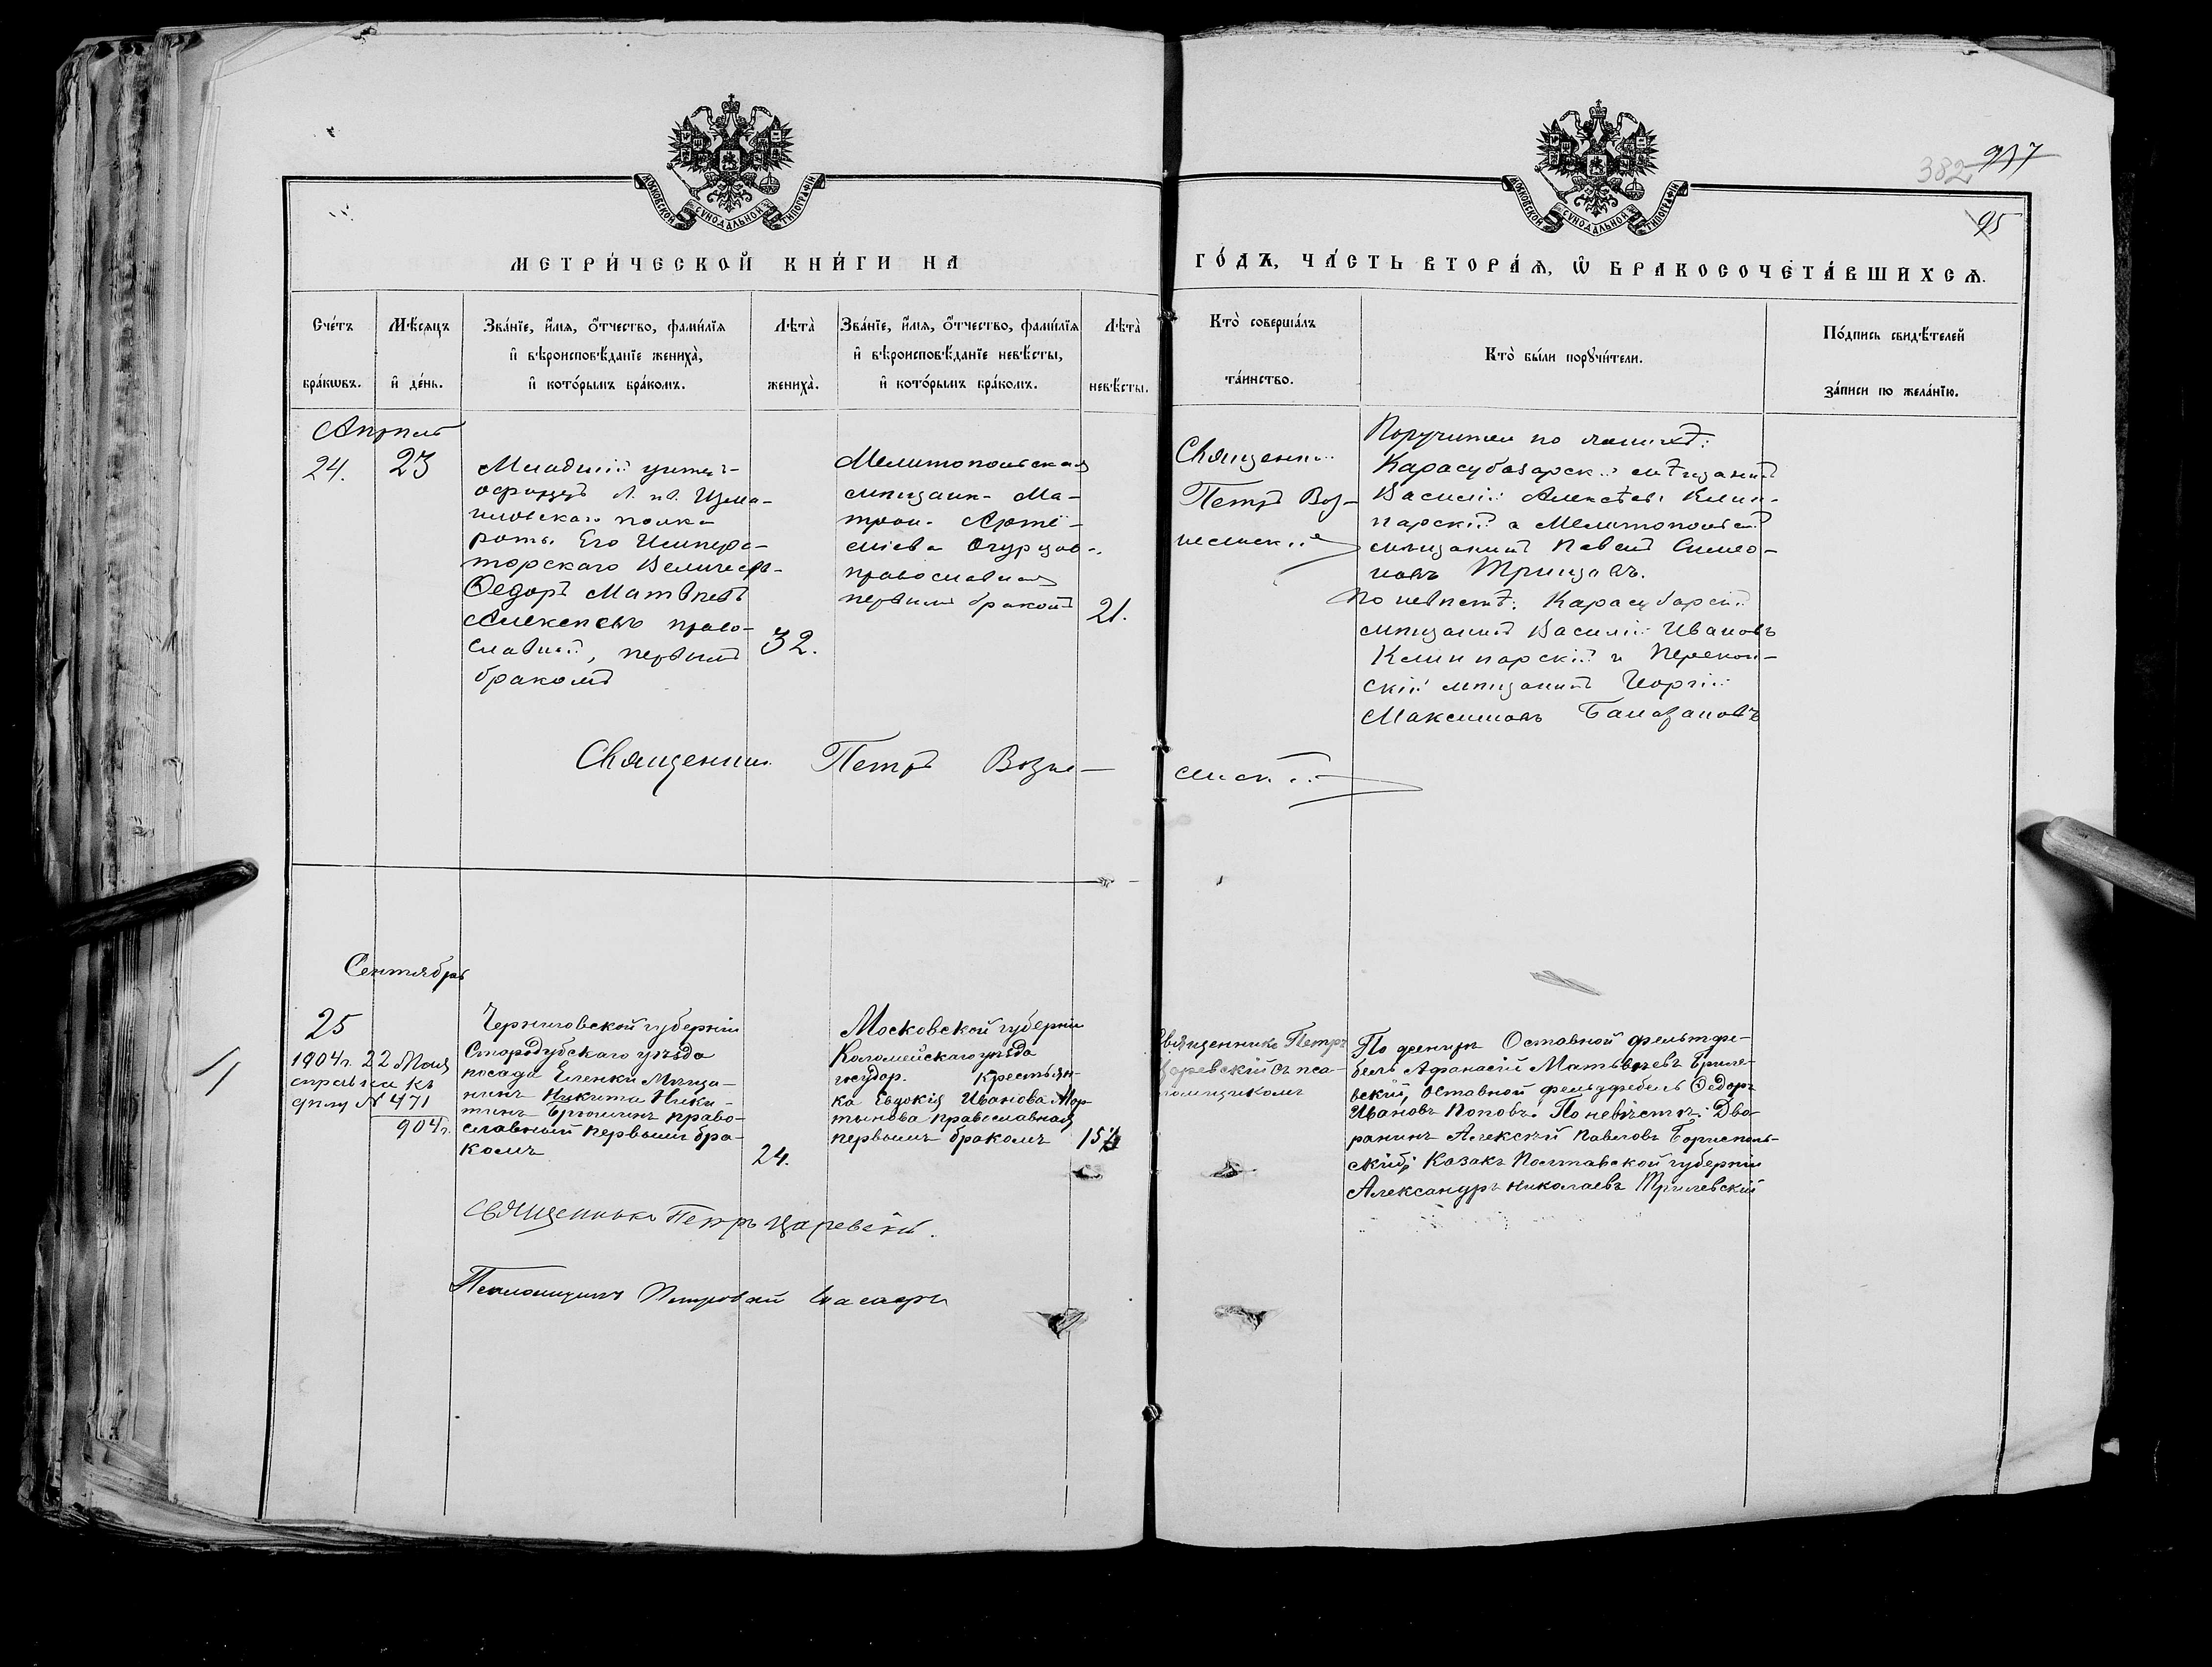 МОСКОВСКОЙ СѴНОДАЛЬНОЙ ТИПОГРАФІИ
МОСКОВСКОЙ СѴНОДАЛЬНОЙ ТИПОГРАФІИ
382 917
95
МЕТРИ́ЧЕСКОЙ КНИ́ГИ НА
ГО́ДЪ, ЧА́СТЬ ВТОРА́Ѧ, Ѽ БРАКОСОЧЕТА́ВШИХСѦ.
Сче́тъ
бра́кωвъ.
Мѣ́сяцъ
и҆ де́нь.
Зва́нїе, и҆́мѧ, ѻ҆́тчество, фами́лїѧ
и҆ вѣроисповѣ́данїе жениха̀,
и҆ кото́рымъ бра́комъ.
Лѣта̀
жениха̀.
Зва́нїе, и҆́мѧ, ѻ҆́тчество, фами́лїѧ
и҆ вѣроисповѣ́данїе невѣ́сты,
и҆ кото́рымъ бра́комъ.
Лѣта̀
невѣ́сты.
Кто̀ соверша́лъ
та́инство.
Кто̀ бы́ли порꙋчи́тели.
По́дпись свидѣ́телей
за́писи по жела́нїю.
Апрѣль
24.
23
Младшій
Л. гв. Изма-
иловскаго полка
роты Его Импера-
торскаго Величеств-
Ѳедоръ Матвѣевъ
Алексѣевъ право-
славный, первымъ
бракомъ
32.
Мелитопольская
мѣщанк. Ма-
трон. Артё-
міева Огурцов.
православная
первымъ бракомъ
21.
Священни
Петръ Воз-
несенскій
Поручители по женихѣ:
Карасубазарск. мѣщанинъ
Василій Алексѣев. Клин-
тарскій и Мелитопольск.
мѣщанинъ Павелъ Симео-
новъ
По невѣстѣ: Карасубарскій
мѣщанинъ Василій Ивановъ
и Перекоп-
скій мѣщанинъ Георгій
Максимовъ
Священни Петръ Возне-
сенскій
Сентябрь
25
1904 г. 22 Мая
справка къ
дѣлу № 471
904 г.
Черниговской губерніи
Стародубскаго уѣзда
посада Еленки Мѣща-
нинъ Никита Ники-
тинъ право-
славный первымъ бра-
комъ
24.
Московской губерніи
Коломейскаго уѣзда
государ. крестьян-
ка Евдокія Иванова Мар-
тынова православная
первымъ бракомъ
15½
Священникъ Петръ
Царевскій съ пса-
ломщикомъ
По женихѣ Отставной фельтфе-
бель Афанасій Матвѣевъ
вскій, Отставной фельдфебель Ѳедоръ
Ивановъ Поповъ. По невѣстѣ: Дво-
рянинъ Алексѣй Павловъ Бориспол-
скій; Козакъ Полтавской губерніи
Александръ Николаевъ Трилевскій
Священникъ Петръ Царевскій.
Псаломщикъ